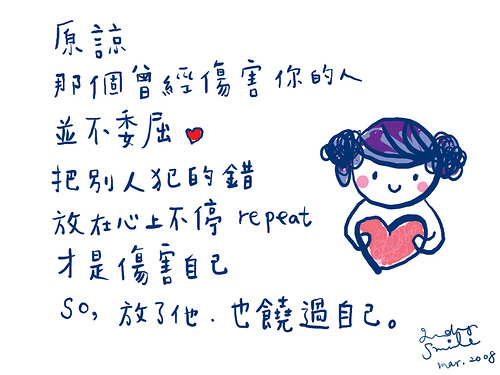 原諒
那個曾經傷害你的人
並不委屈
把別人犯的錯
放在心上不停 repeat
才是傷害自己
So, 放了他．也饒過自己。
Smile
mar. 2008